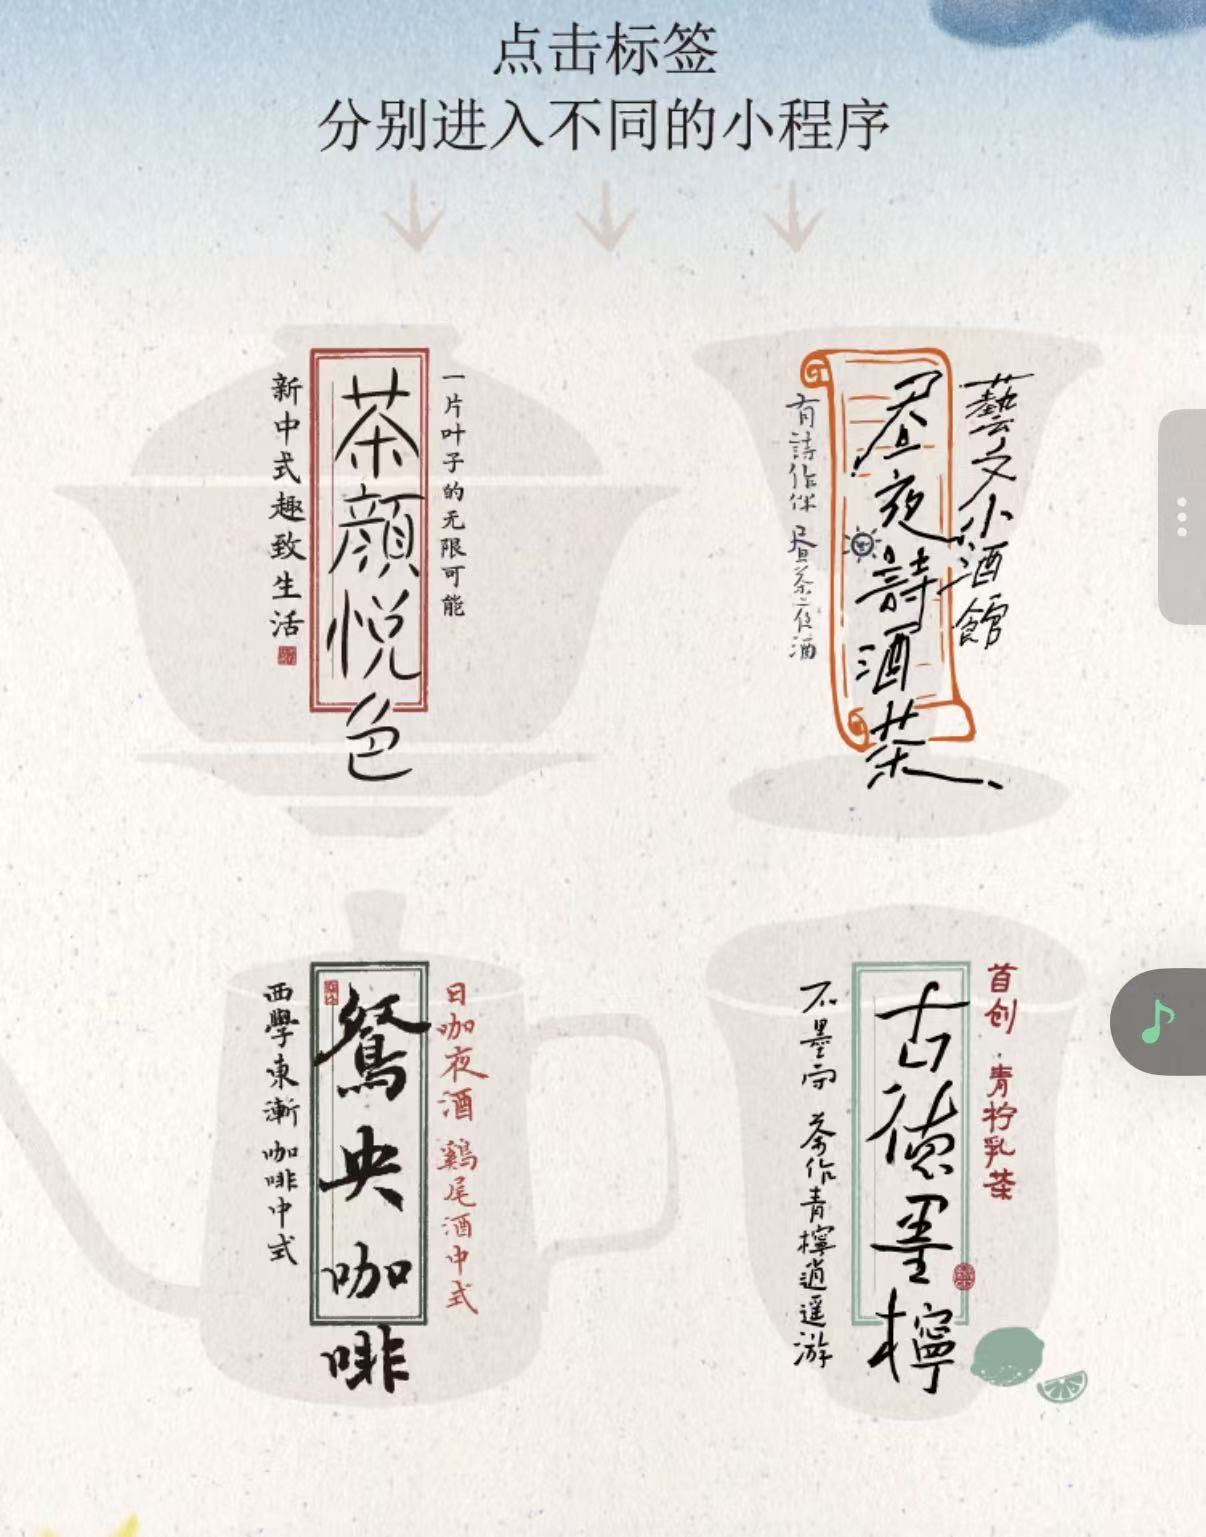 点击标签
分别进入不同的小程序
一片叶子的无限可能
茶颜悦色
新中式趣致生活
藝文小酒館
昼夜詩酒茶
有詩作伴 昼茶夜酒
日咖夜酒 鷄尾酒中式
鴛央咖啡
西學東漸 咖啡中式
首创·青柠乳茶
古德墨檸
不墨守 茶作青檸逍遥游